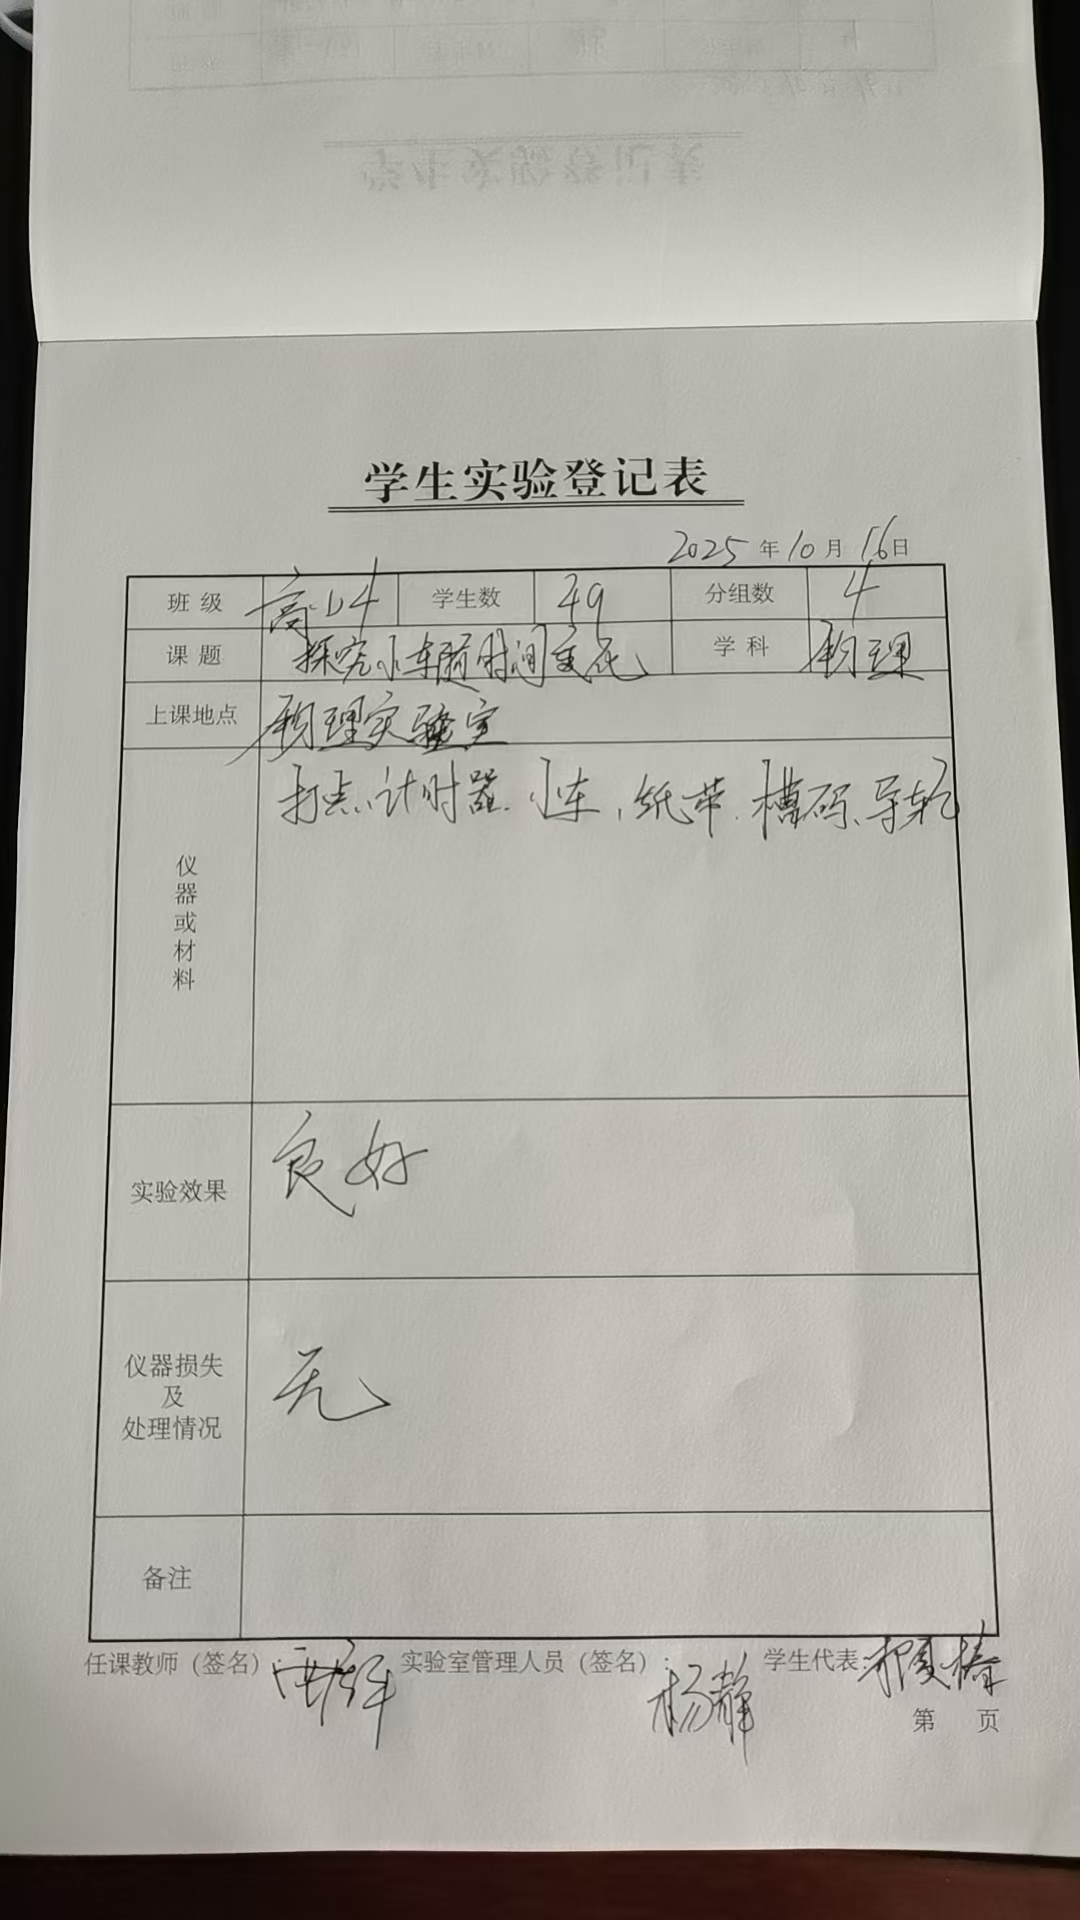 学生实验登记表
2025 年 10 月 16 日
班级 高 14 学生数 49 分组数 4
课题 探究小车随时间变化 学科 物理
上课地点 物理实验室
仪器或材料 打点计时器、小车、纸带、槽码、导轨
实验效果 良好
仪器损失
及
处理情况 无
备注
任课教师（签名）： 实验室管理人员（签名）：杨静 学生代表：
第 页